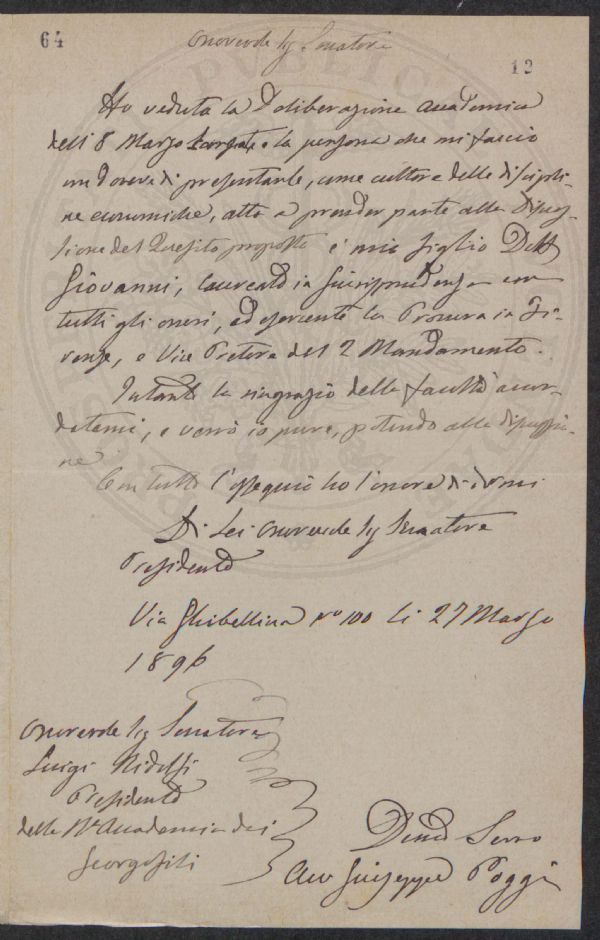 64
Onorevole Sig Senatore
12
Ho veduta la Deliberazione Accademica
delli 8 Marzo e la persona che mi faccio
un dovere di presentarle, come cultore delle discipli-
ne economiche, atto a prender parte alla Discus-
sione del Quesito proposto è mio figlio Dott
Giovanni, laureato in Giurisprudenza con
tutti gli onori, ed esercente la Procura in Fi-
renze, e Vice Pretore del 2 Mandamento.
Intanto la ringrazio della facoltà accor-
datemi, e verrò io pure, potendo alla discussio-
ne
Con tutto l'ossequio ho l'onore di dirmi
Di Lei Onorevole Sig Senatore
Presidente
Via Ghibellina No 100 li 27 Marzo
1896
Onorevole Sig Senatore
Luigi Ridolfi
Presidente
della Rle Accademia dei
Georgofili
Devmo Servo
Avv Giuseppe Poggi